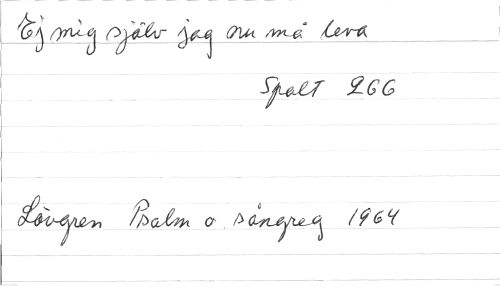 Ej mig själv jag nu må leva
Spalt 266
Lövgren Psalm o. sångreg 1964